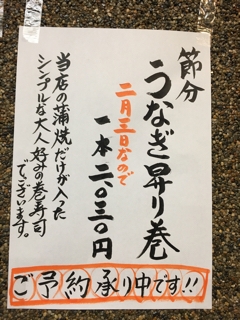 節分
うなぎ昇り巻
二月三日なので
一本二〇三〇円
当店の蒲焼だけが入った
シンプルな大人好みの巻寿司
でございます。
ご予約承り中です!!